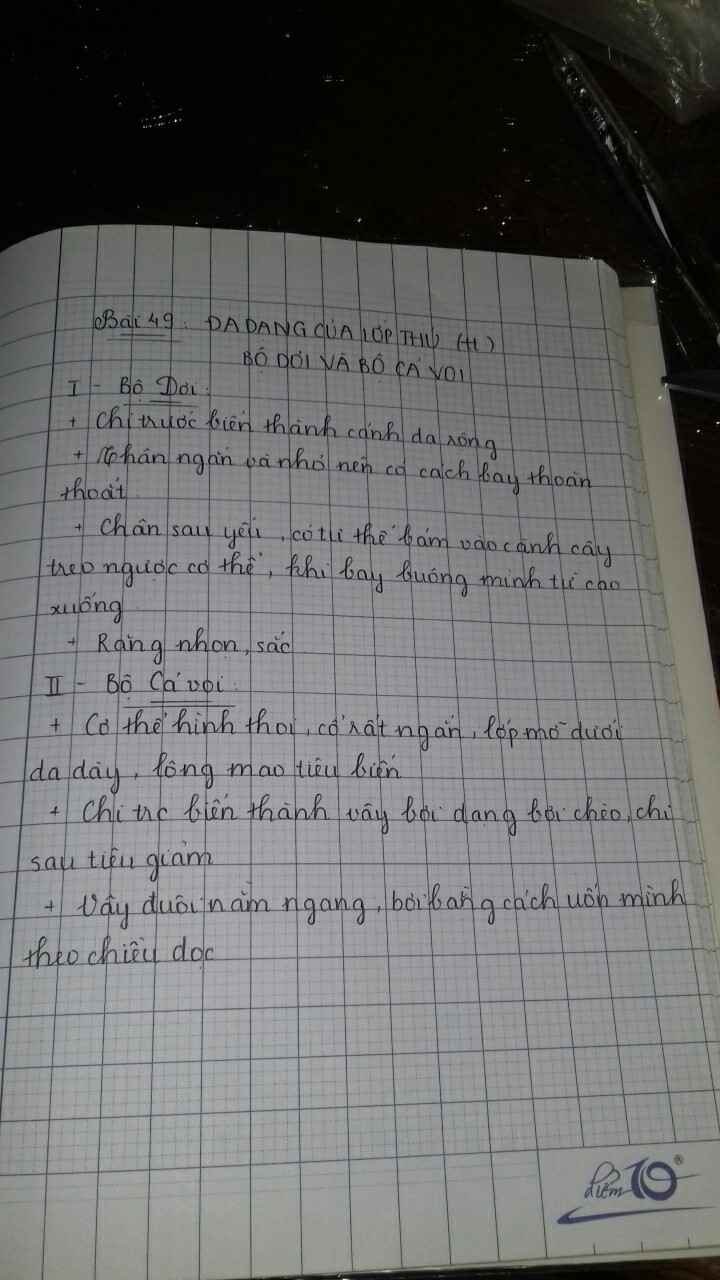 Bài 49: ĐA DẠNG CỦA LỚP THÚ (tt)
BỘ DƠI VÀ BỘ CÁ VOI
I - Bộ Dơi:
+ Chi trước biến thành cánh da rộng
+ Thân ngắn và nhỏ nên có cách bay thoăn
thoắt
+ Chân sau yếu, có tư thế bám vào cành cây
treo ngược cơ thể, khi bay buông mình từ cao
xuống
+ Răng nhọn, sắc
II - Bộ Cá voi:
+ Cơ thể hình thoi, cổ rất ngắn, lớp mỡ dưới
da dày, lông mao tiêu biến
+ Chi trc biến thành vây bơi dạng bơi chèo, chi
sau tiêu giảm
+ Vây đuôi nằm ngang, bơi bằng cách uốn mình
theo chiều dọc
Điểm 10®